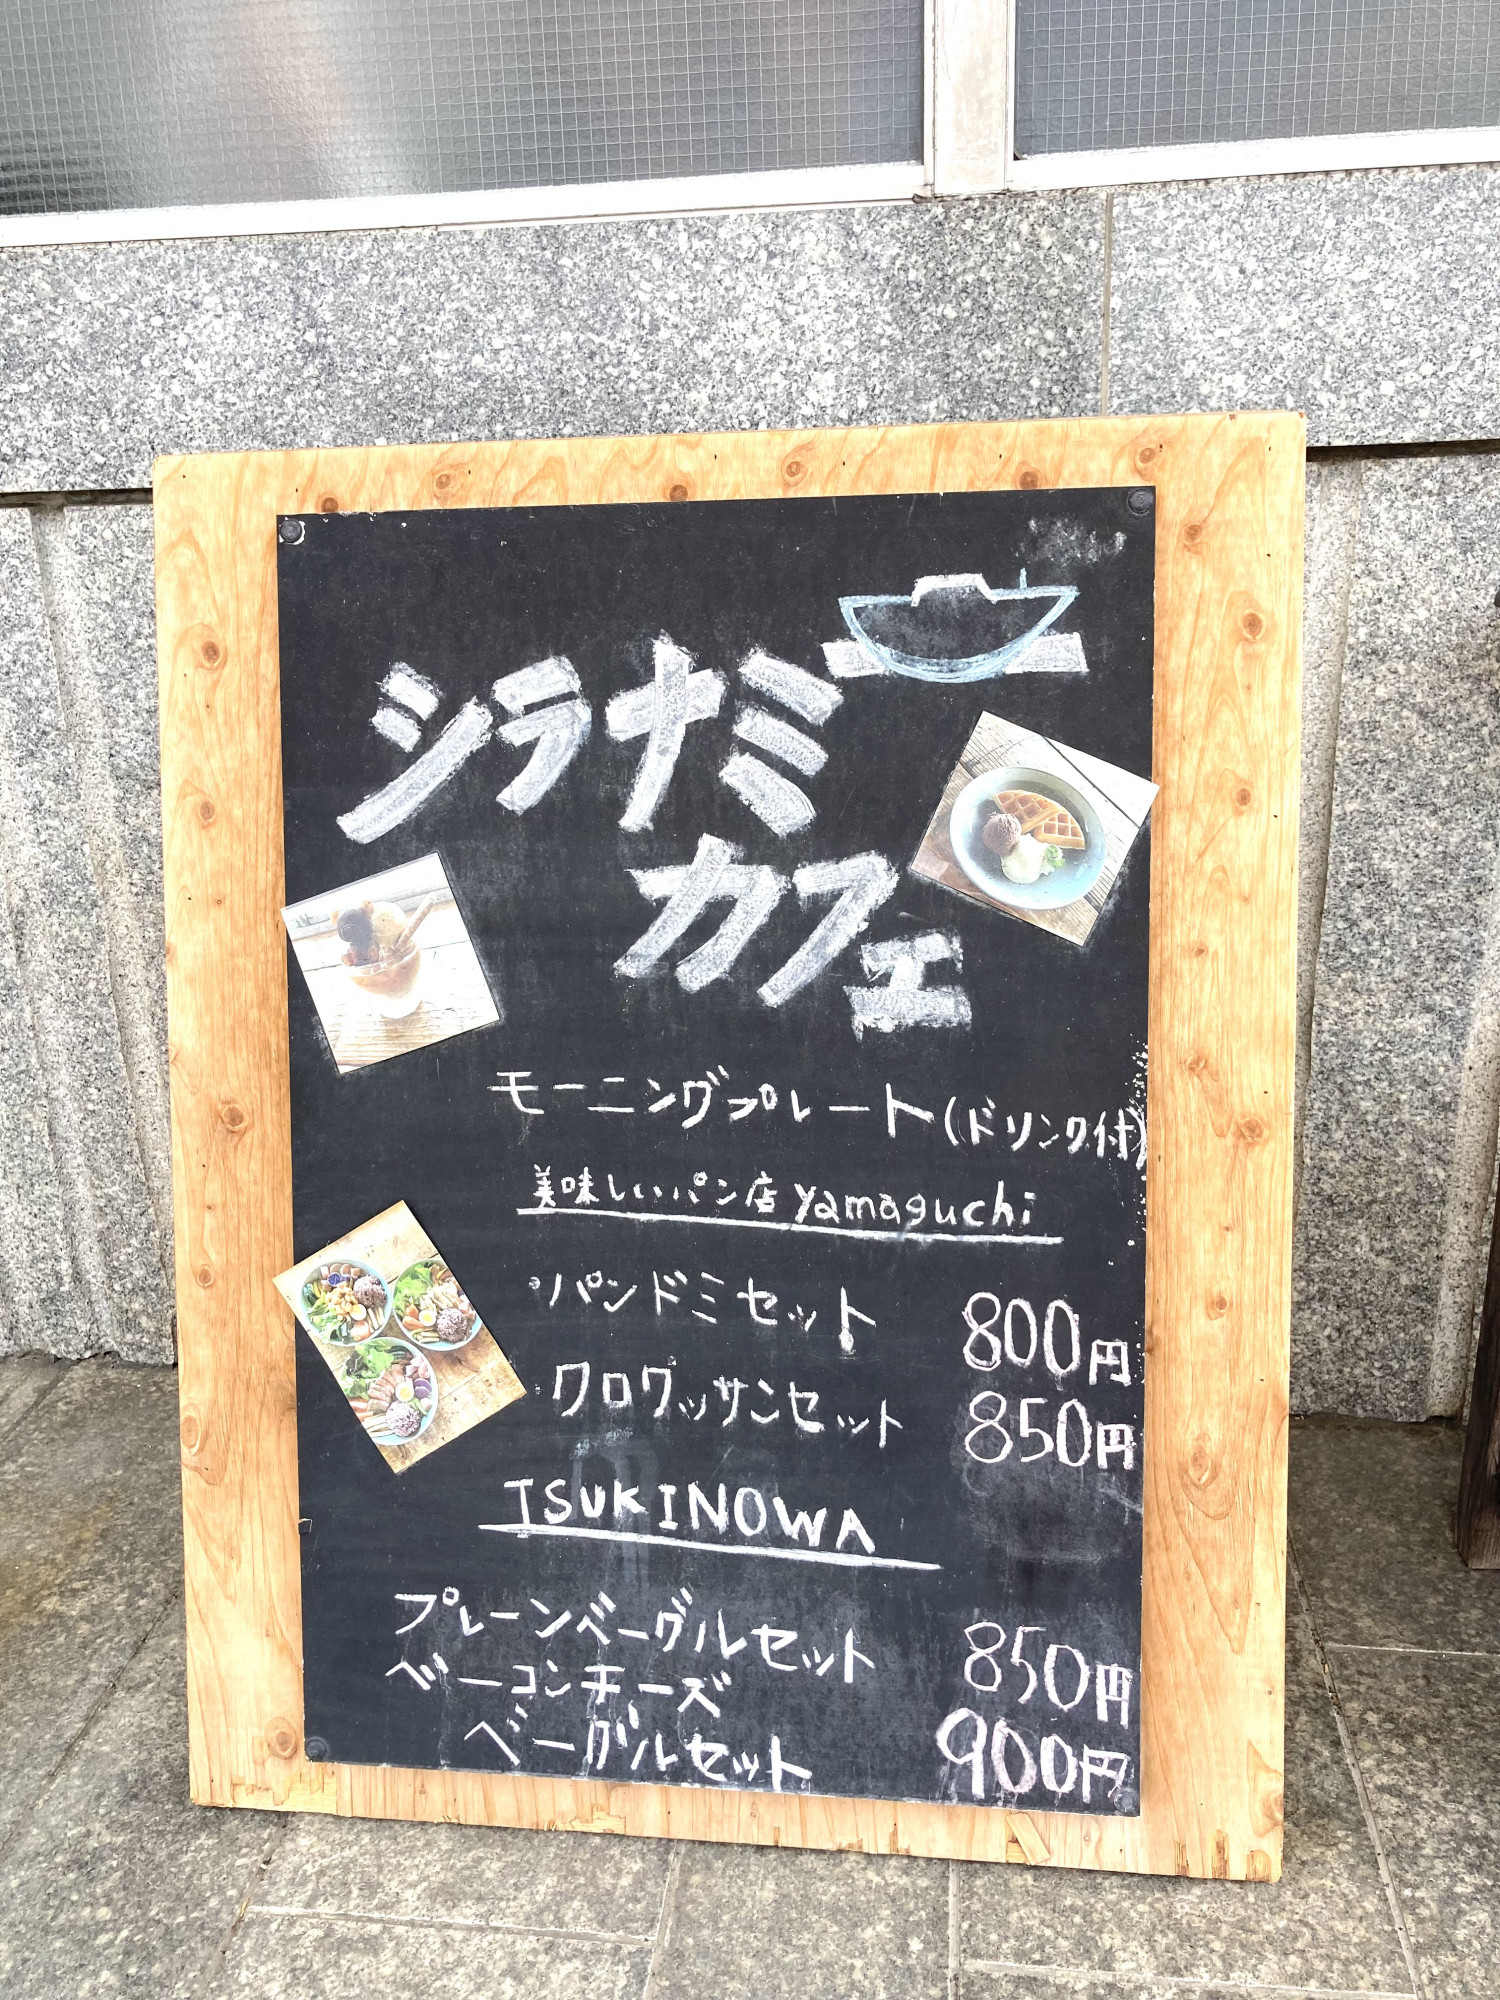 シラナミ
カフェ
モーニングプレート(ドリンク付)
美味しいパン店 yamaguchi
・パンドミセット 800円
・クロワッサンセット 850円
TSUKINOWA
プレーンベーグルセット 850円
ベーコンチーズ
ベーグルセット 900円